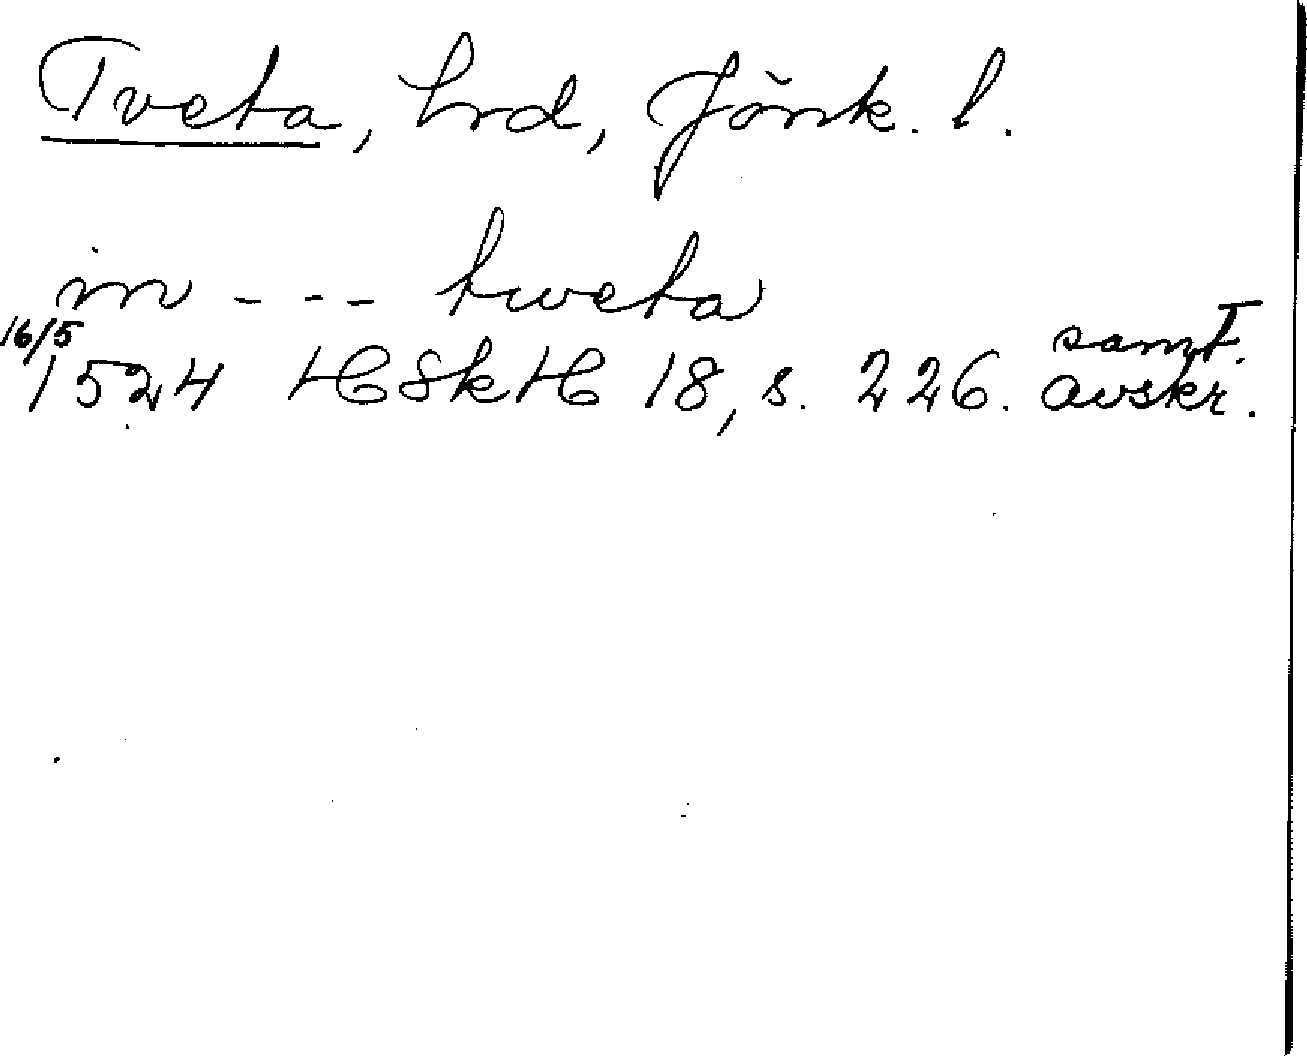 Tveta, hrd, Jönk. l.
in - - - tweta
16/5 samt.
1524 HSkH 18, s. 226. avskr.